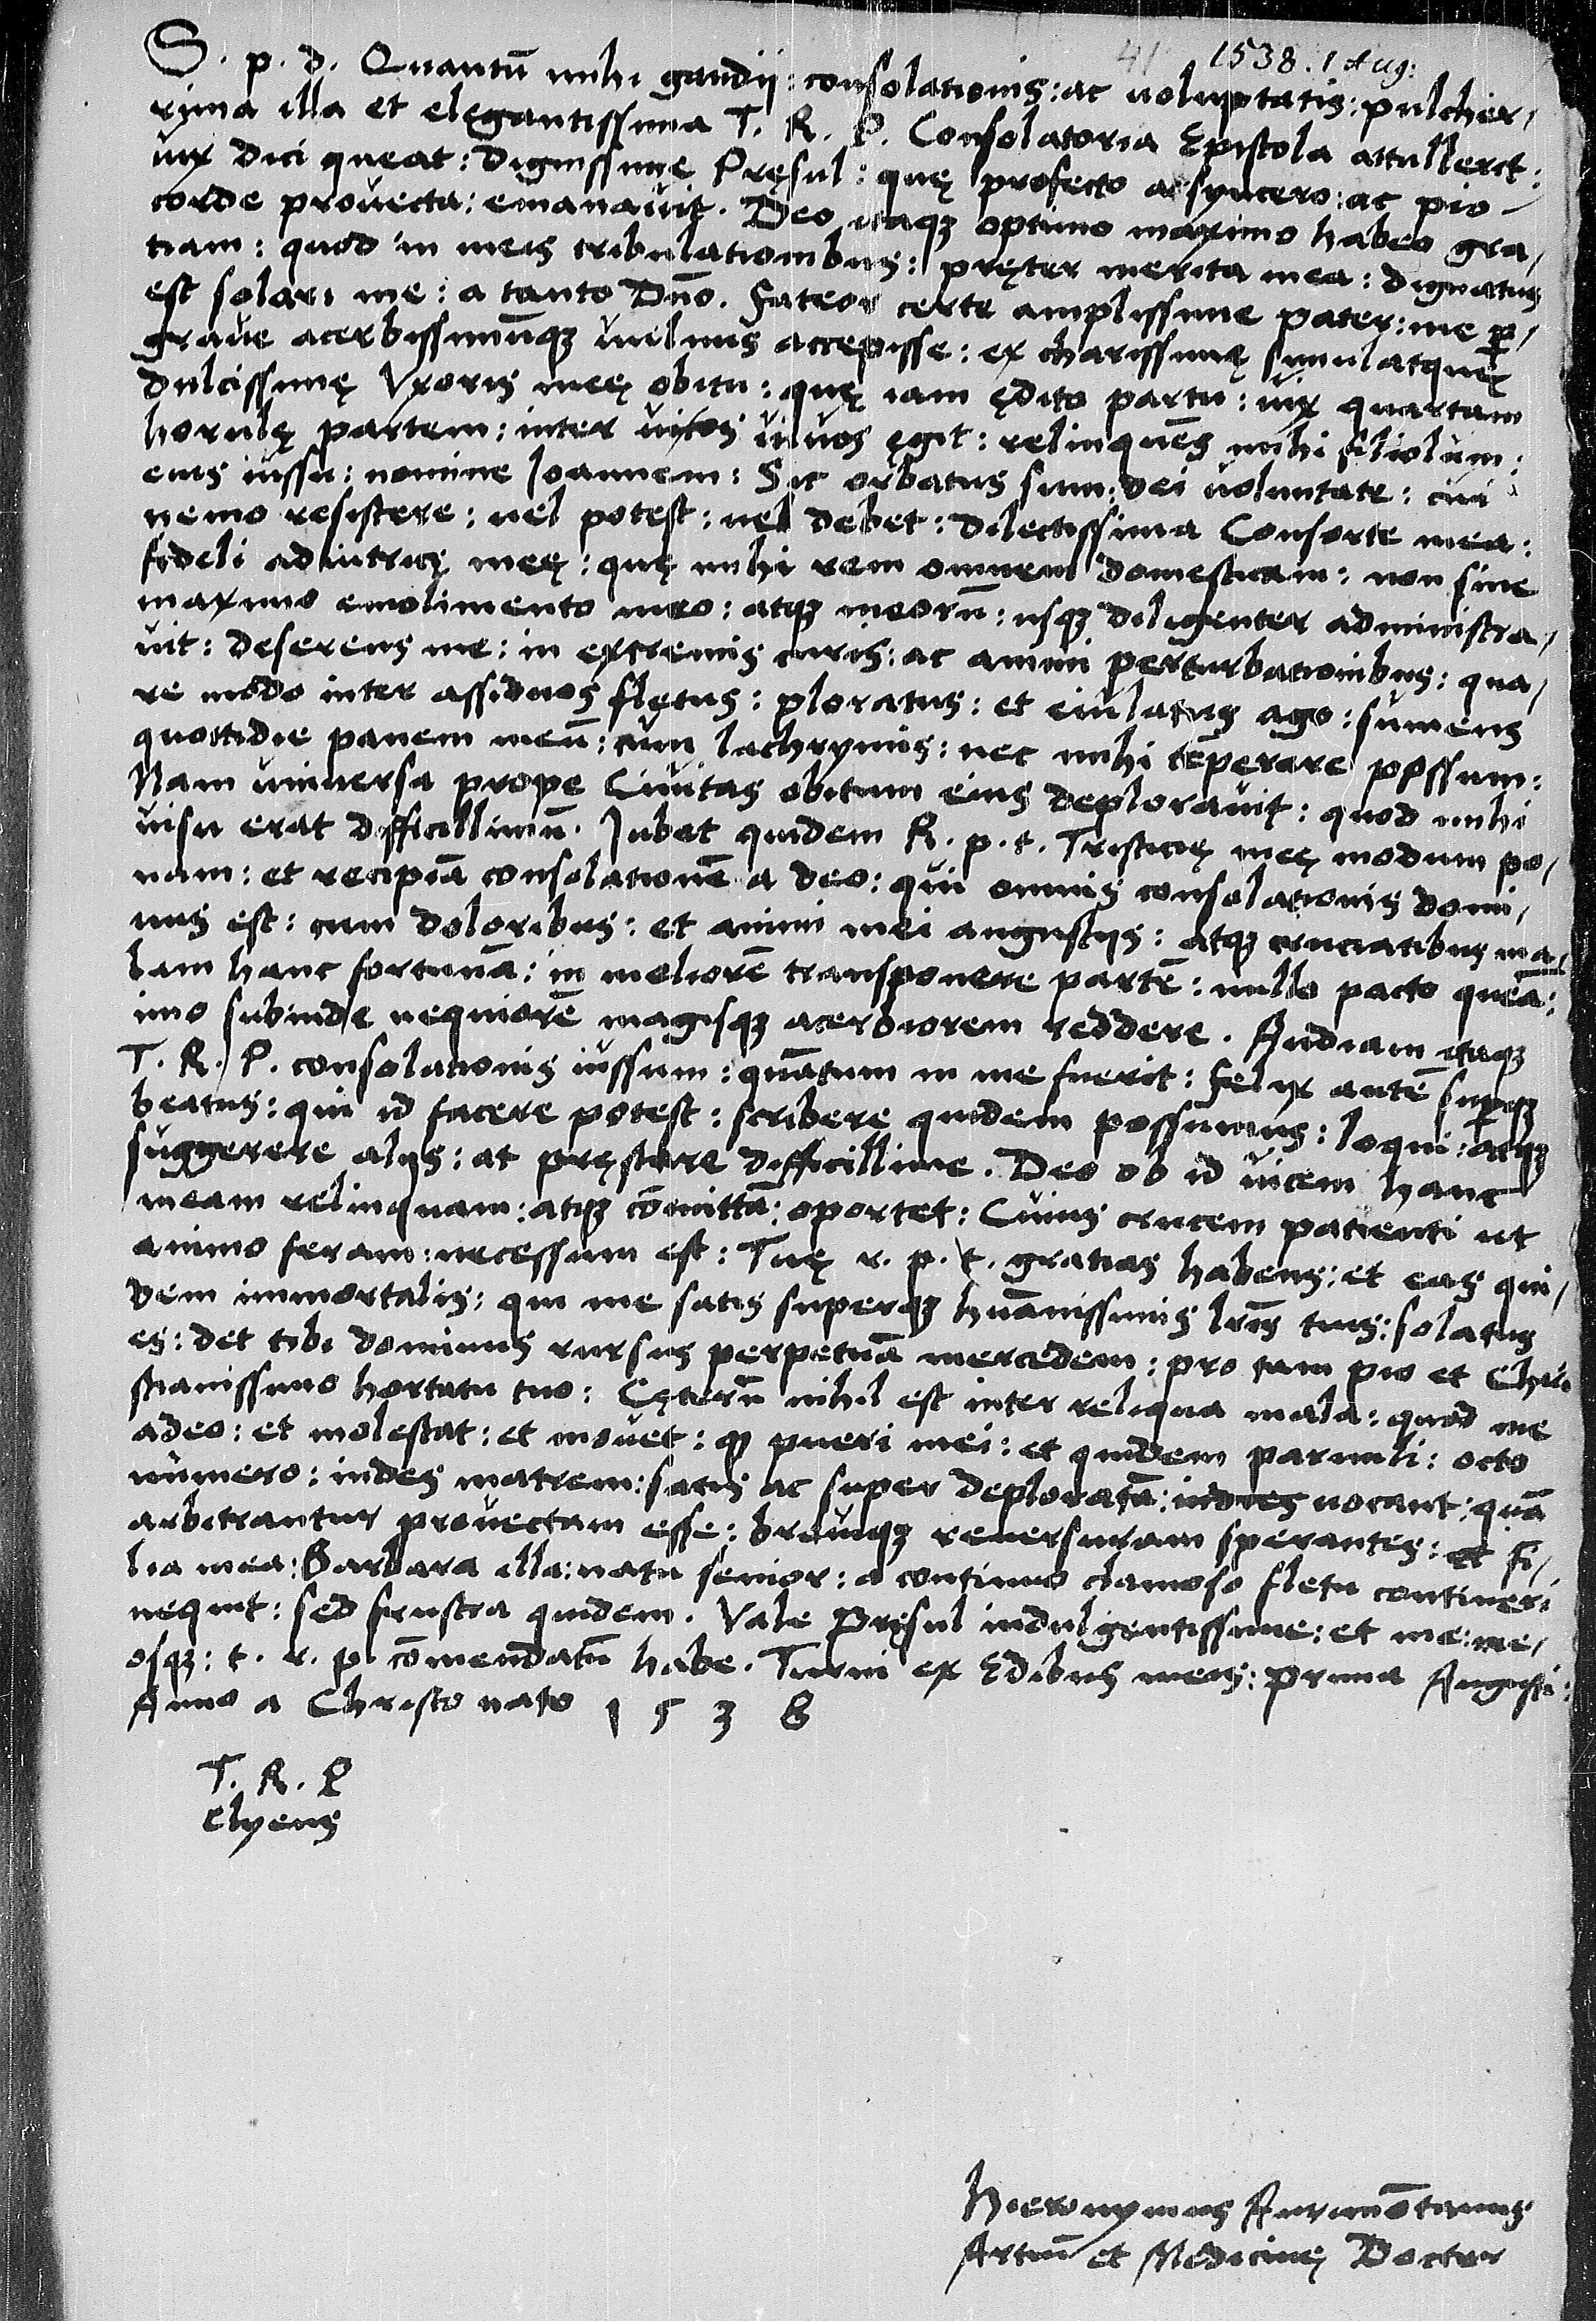 41 1538. 1 Aug:
S. p. d. Quantū mihi gaudij: consolationis: ac uoluptatis: pulcher,
rima illa et elegantissima T. R. P. Consolatoria Epistola attullerit:
uix dici queat: dignissimę Pręsul: quę profecto a syncero: ac pio
corde prouecta: emanauit. Deo itaqꝫ optimo maximo habeo gra,
tiam: quod in meis tribulationibus: pręter merita mea: dignatus
est solari me: a tanto Dn̄o. Fateor certe amplissime pater: me p,
graue acerbissimūqꝫ uulnus accepisse: ex charissimę simulatquę
dulcissimę Vxoris meę obitu: quę iam ędito partu: uix quartam
horulę partem: inter uiuos ęgit: relinquēs mihi filiolum:
eius iussu: nomine Joannem: Sic orbatus sum: dei uoluntate: cui
nemo resistere: uel potest: uel debet: dilectissima Consorte mea:
fideli adiutricę meę: quę mihi rem omnem domesticam: non sine
maximo emolimento meo: atqꝫ meorū: usqꝫ diligenter administra,
uit: deserens me: in extremis curis: ac animi perturbationibus: qua,
re modo inter assiduos flętus: ploratus: et eiulatus ago: sumens
quottidie panem meū: cum lachrymis: nec mihi tēperare possum:
Nam uniuersa prope Ciuitas obitum eius deplorauit: quod mihi
uisu erat difficillimū. Jubet quidem R. p. t. Tristicię meę modum po,
nam: et recipiā consolationē a deo: qui omnis consolationis domi,
nus est: cum doloribus: et animi mei angustijs: atqꝫ cruciatibus ma,
lam hanc fortunā: in meliorē transponere partē: nullo pacto queā:
imo subinde nequiorē magisqꝫ acerbiorem reddere. Audiam itaqꝫ
T. R. P. consolationis iussum: quātum in me fuerit: felix autē supraqꝫ
beatus: qui id facere potest: scribere quidem possumus: loqui: atqꝫ
suggerere alijs: at pręstare difficillime. Deo ob id uicem hanc
meam relinquam: atqꝫ cōmittā: oportet: Cuius crucem patienti ut
animo feram: necessum est: Tuę r. p. t. gratias habens: et eas qui,
dem immortalis: qui me satis superqꝫ huānissimis lrīs tuis: solatus
es: det tibi dominus rursus perpetuā mercedem: pro tam pio et Chri
stianissimo hortatu tuo: Cęterū nihil est inter reliqua mala: quod me
adeo: et molestat: et mouet: qꝫ pueri mei: et quidem paruuli: octo
numero: indes matrem: satis ac super deploratā: uocant: quā
arbitrantur prouectam esse: breuiqꝫ reuersuram sperantes: et fi,
lia mea: Barbara illa: natu senior: a continuo clamoso fletu contineri
nequit: sed frustra quidem. Vale Pręsul indulgentissime: et me: me,
osqꝫ: t. r. p. cōmendatū habe. Turini ex Edibus meis: prima Augusti:
Anno a Christo nato 1 5 3 8
T. R. P
Clyens
Hieronymus Aurimōtanus
Artiū et Medicinę Doctor